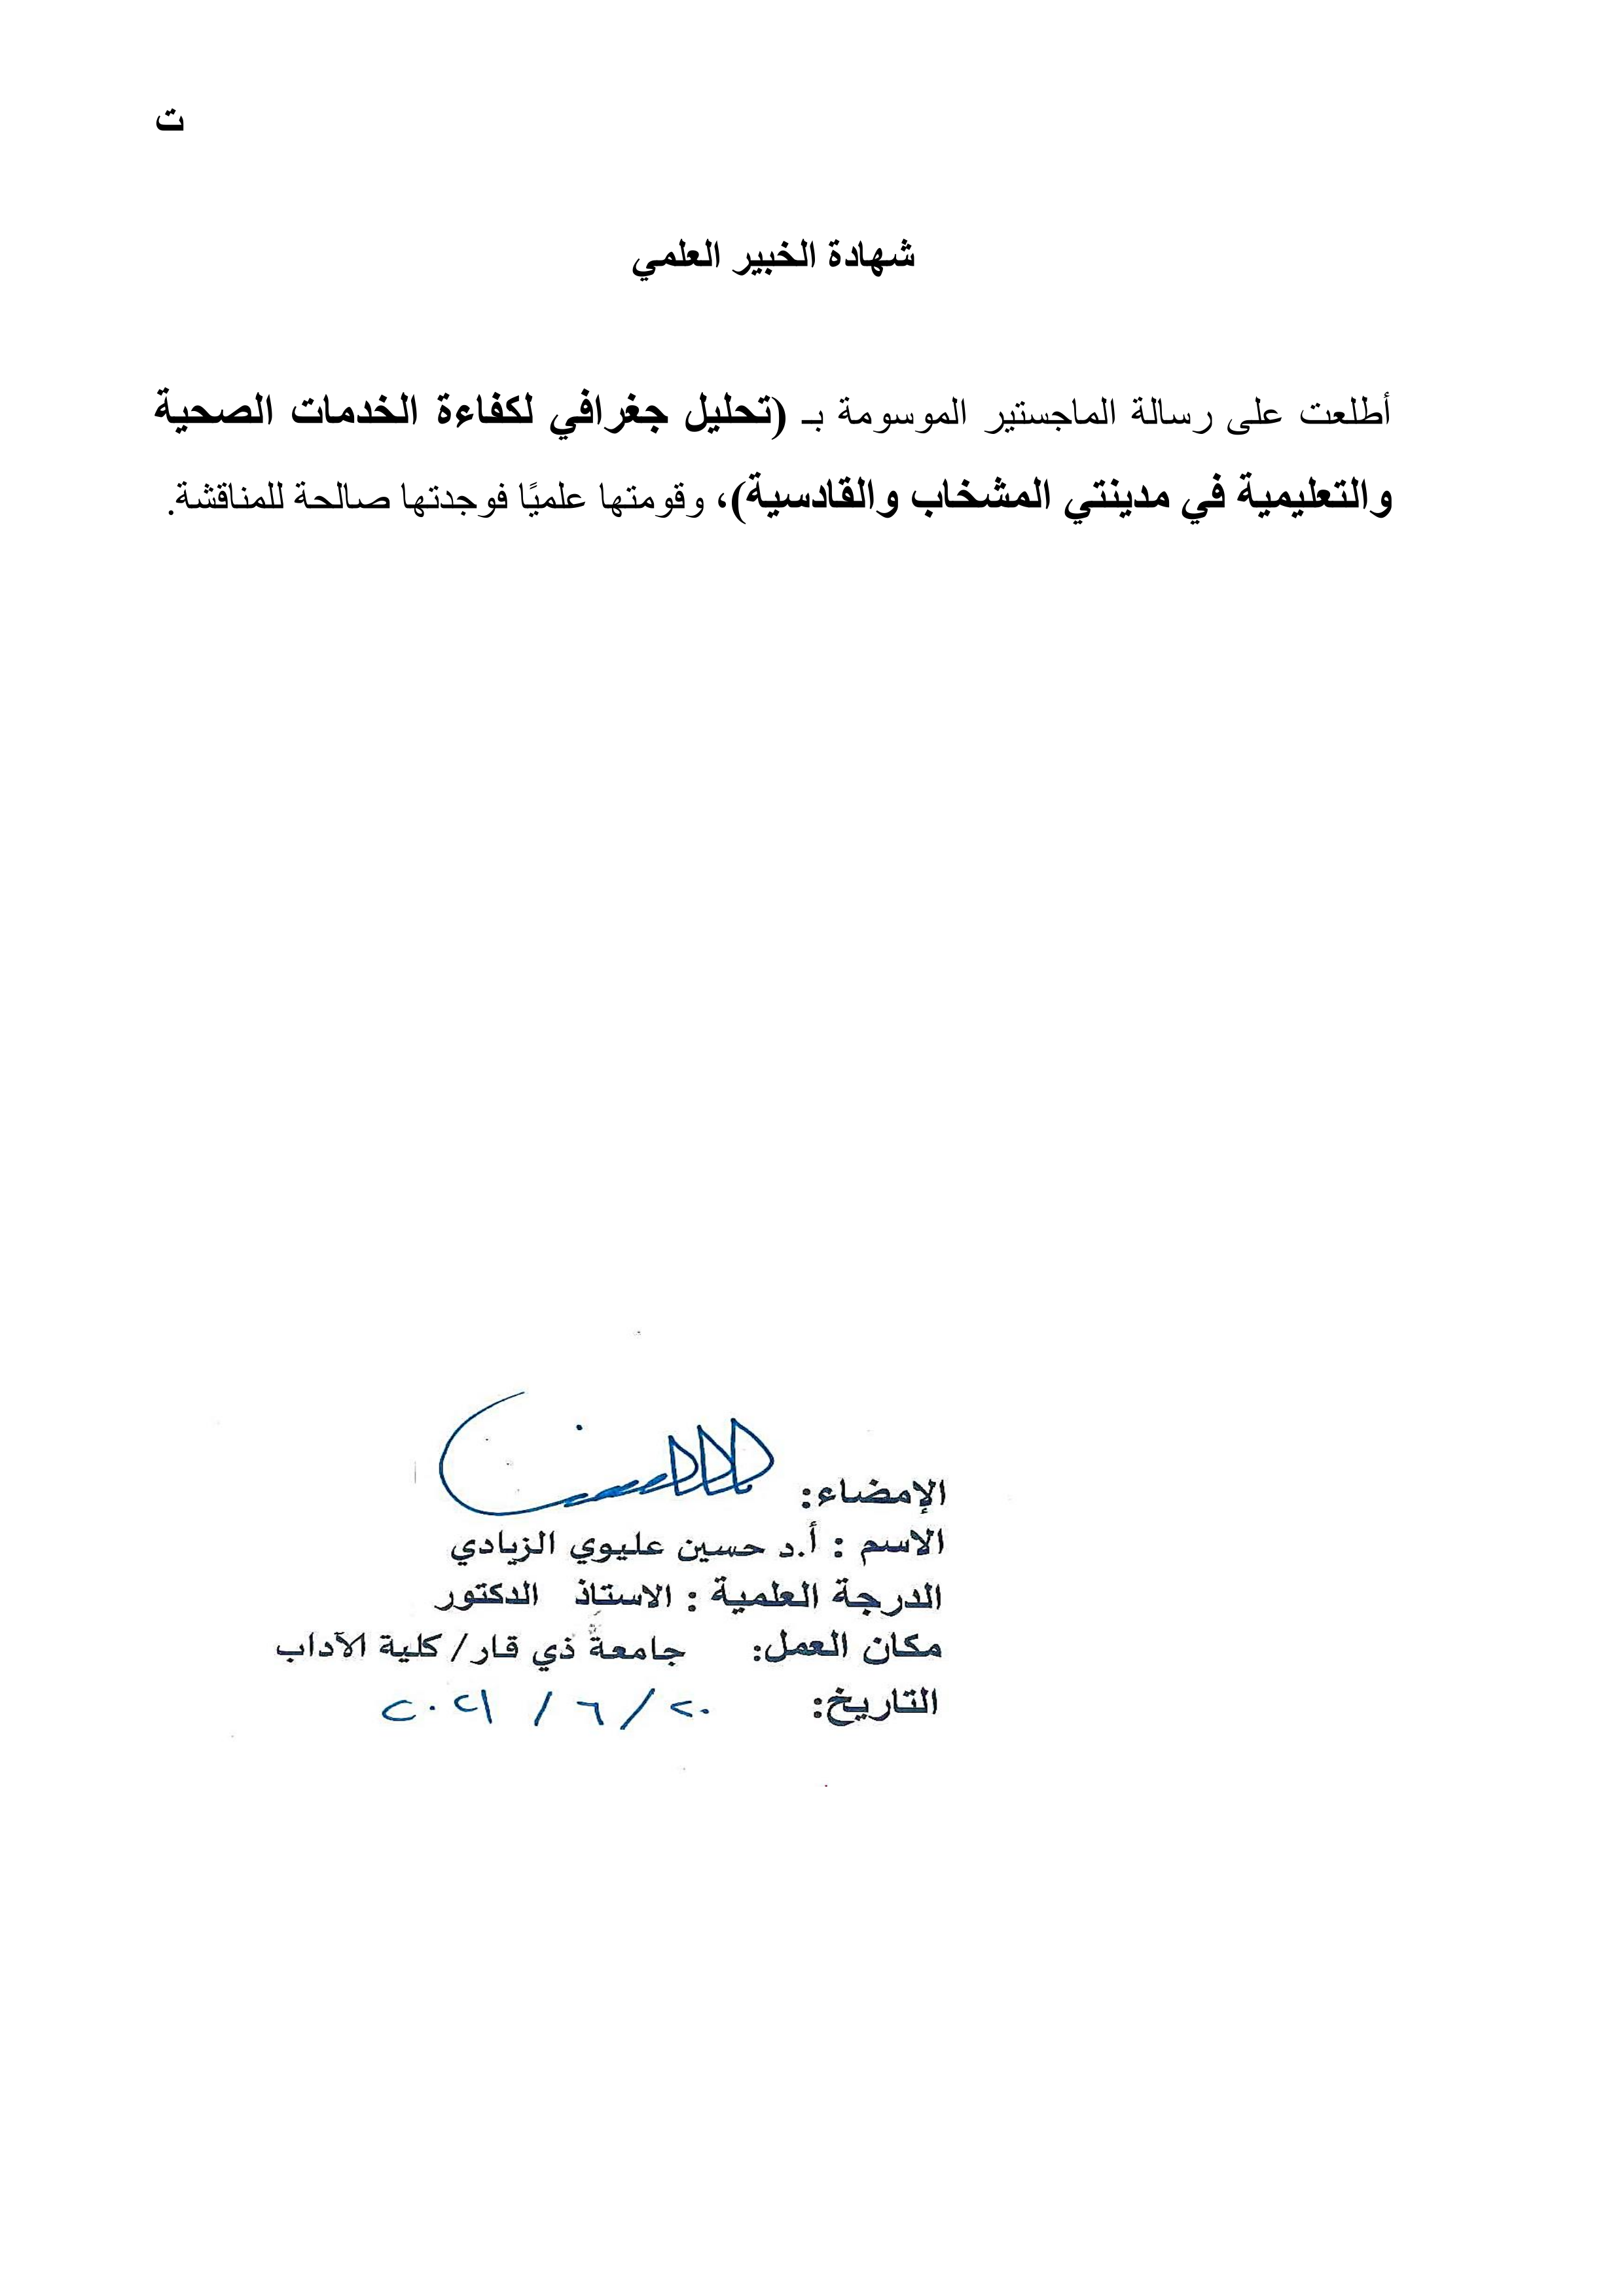 ت
شهادة الخبير العلمي
أطلعت على رسالة الماجستير الموسومة بـ (تحليل جغرافي لكفاءة الخدمات الصحية
والتعليمية في مدينتي المشخاب والقادسية)، وقومتها علميًا فوجدتها صالحة للمناقشة.
الإمضاء:
الاسم : أ.د حسين عليوي الزيادي
الدرجة العلمية : الاستاذ الدكتور
مكان العمل: جامعة ذي قار/ كلية الآداب
التاريخ: ٢٠ / ٦ / ٢٠٢١